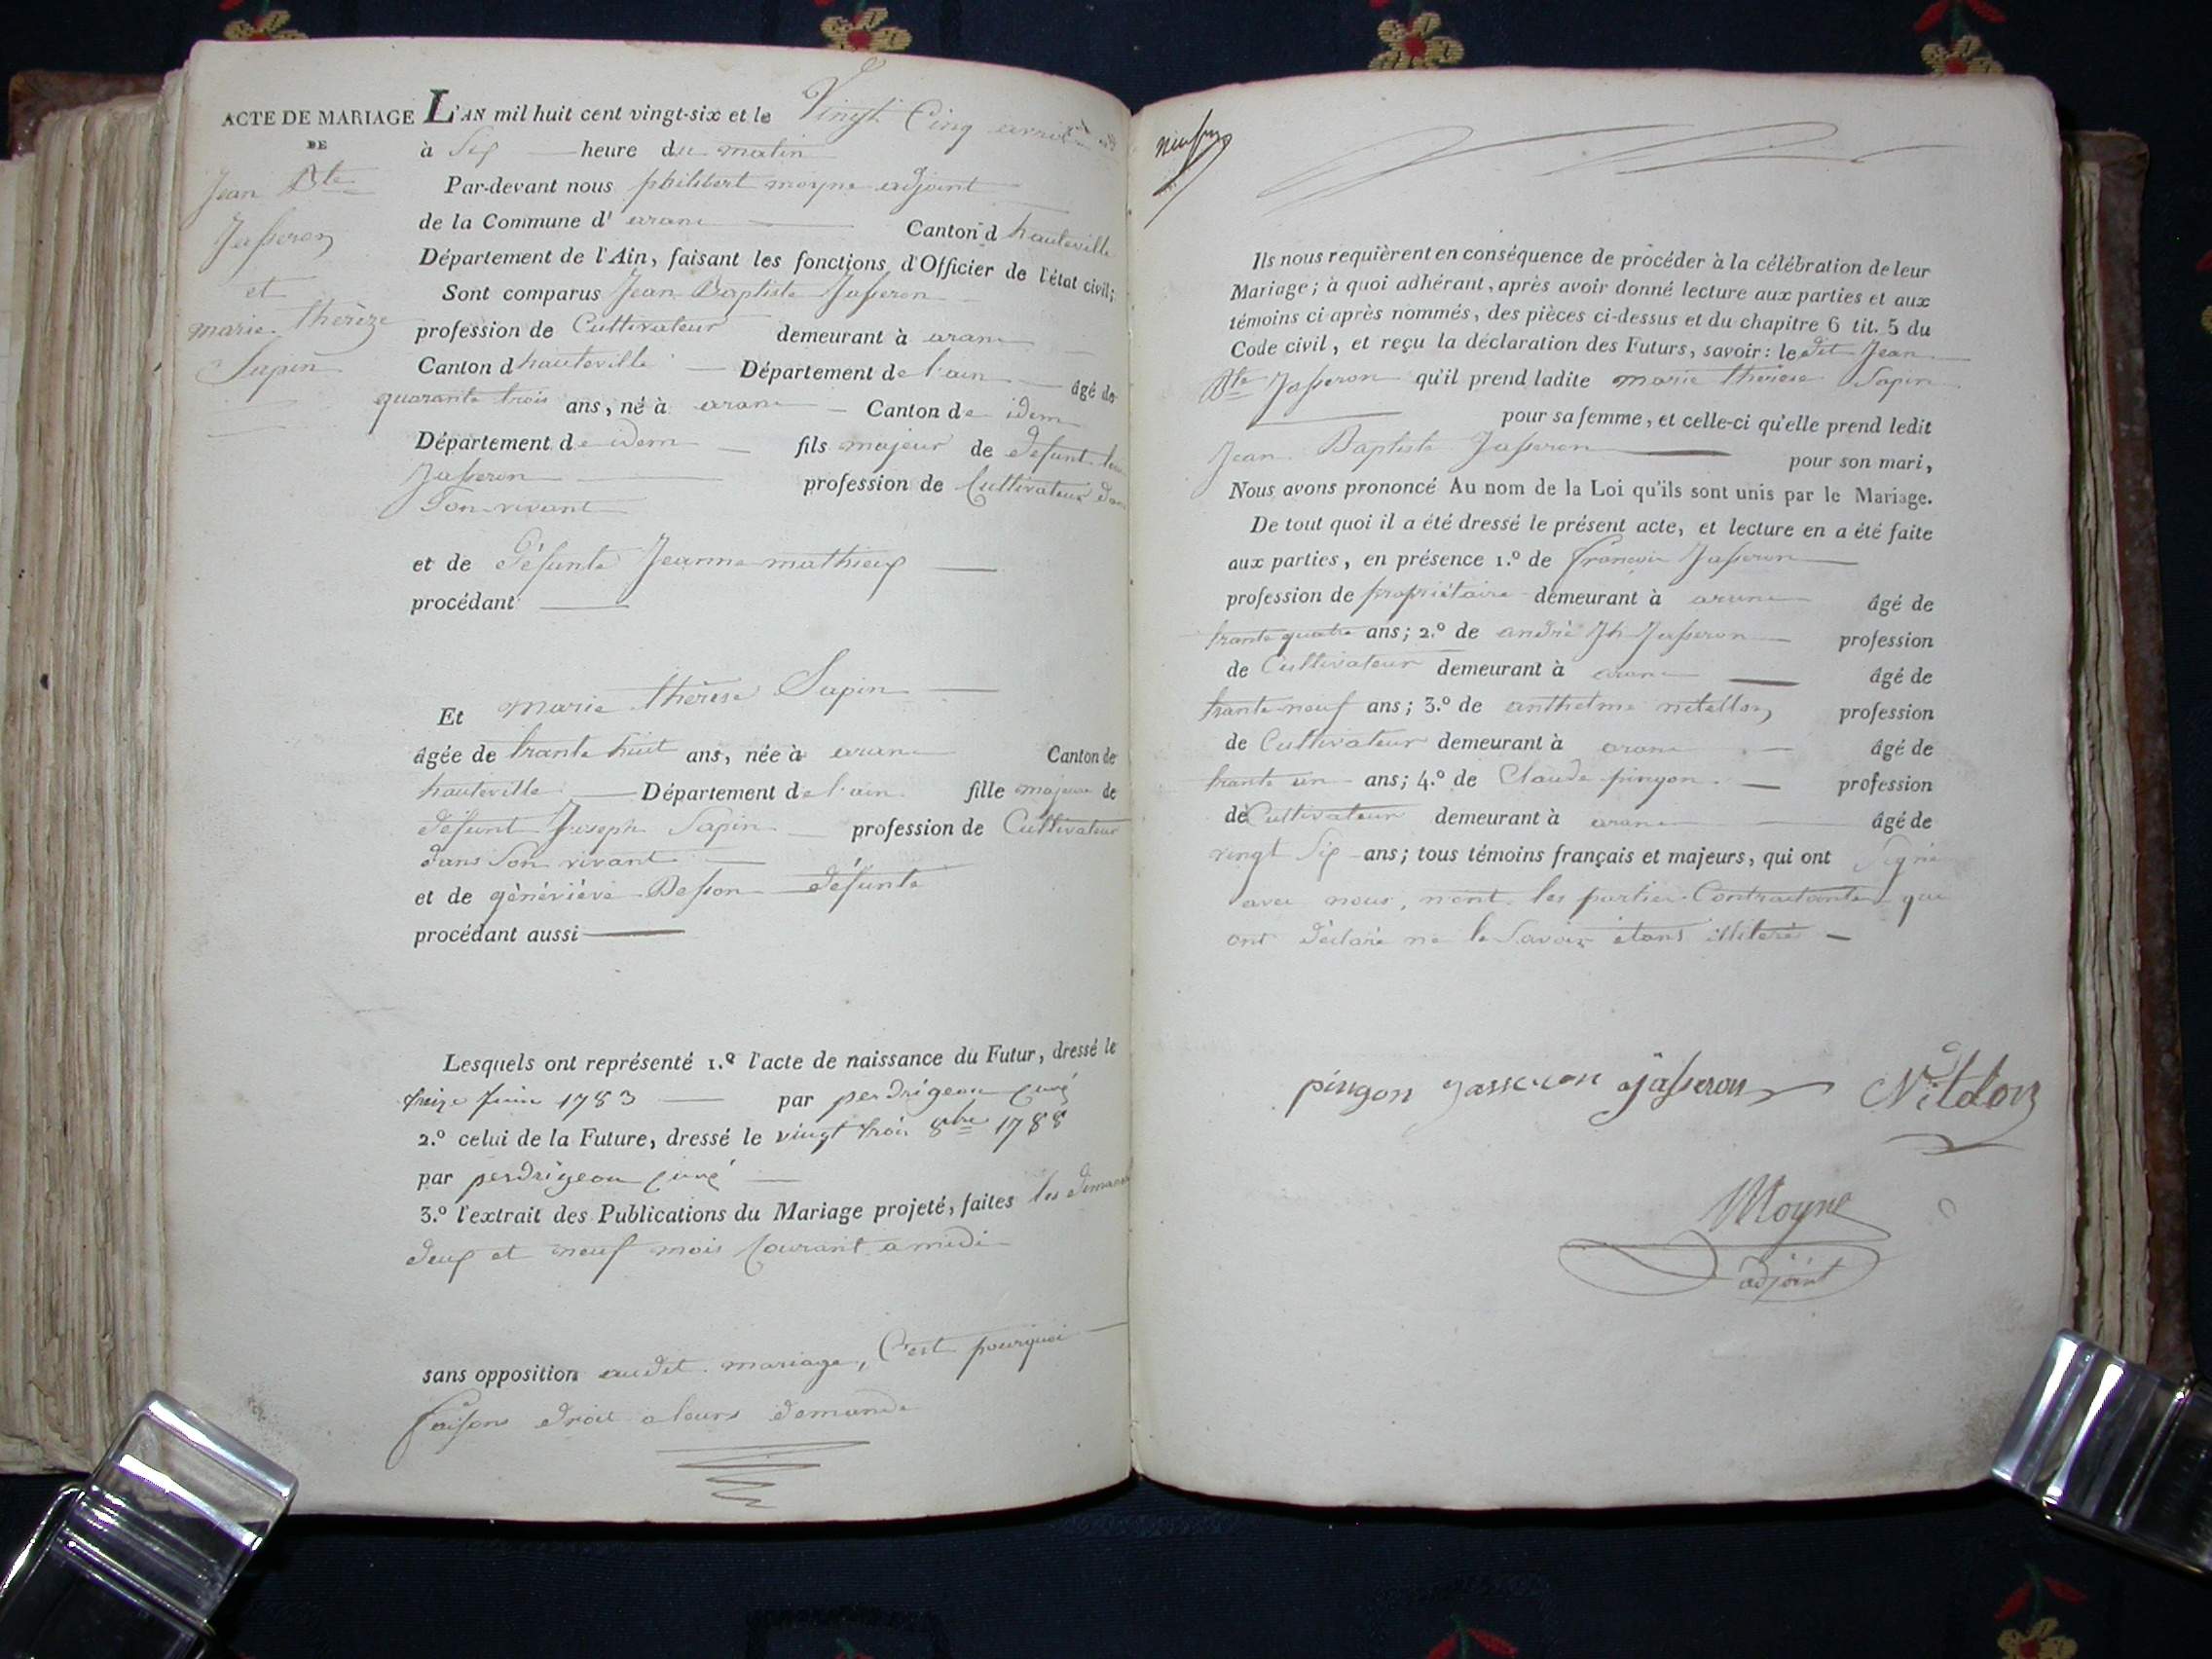 ACTE DE MARIAGE
DE
Jean Bte
Jasseron
et
marie thérèze
Sapin
L'AN mil huit cent vingt-six et le Vingt Cinq avril
à Six heure du matin
Par-devant nous philibert moyne adjoint
de la Commune d' aranc Canton d hauteville
Département de l'Ain, faisant les fonctions d'Officier de l'état civil;
Sont comparus Jean Baptiste Jasseron
profession de Cultivateur demeurant à aranc
Canton d hauteville Département de l'ain âgé de
quarante trois ans, né à aranc Canton de idem
Département de idem fils majeur de défunt
Jasseron profession de Cultivateur dans
Son vivant
et de Défunte Jeanne mathieux
procédant
Et marie thérèse Sapin
âgée de trante huit ans, née à aranc Canton de
hauteville Département de l'ain fille majeure de
défunt Joseph Sapin profession de Cultivateur
dans Son vivant
et de généviéve Besson défunte
procédant aussi
Lesquels ont représenté 1.º l'acte de naissance du Futur, dressé le
treize Juin 1783 par perdrigeon curé
2.º celui de la Future, dressé le vingt trois 8bre 1788
par perdrigeon curé
3.º l'extrait des Publications du Mariage projeté, faites les dimanches
deux et neuf mois Courant a midi
sans opposition audit mariage, C'est pourquoi
faisons droit a leurs demande
neuf
Ils nous requièrent en conséquence de procéder à la célébration de leur
Mariage; à quoi adhérant, après avoir donné lecture aux parties et aux
témoins ci-après nommés, des pièces ci-dessus et du chapitre 6 tit. 5 du
Code civil, et reçu la déclaration des Futurs, savoir: le dit Jean
Bte Jasseron qu'il prend ladite marie thérèse Sapin
pour sa femme, et celle-ci qu'elle prend ledit
Jean Baptiste Jasseron pour son mari,
Nous avons prononcé Au nom de la Loi qu'ils sont unis par le Mariage.
De tout quoi il a été dressé le présent acte, et lecture en a été faite
aux parties, en présence 1.º de françois Jasseron
profession de propriétaire demeurant à aranc âgé de
trante quatre ans; 2.º de andré Jh Jasseron profession
de Cultivateur demeurant à aranc âgé de
trante neuf ans; 3.º de anthelme nitellon profession
de Cultivateur demeurant à aranc âgé de
trante un ans; 4.º de Claude pingon profession
de Cultivateur demeurant à aranc âgé de
vingt Six ans; tous témoins français et majeurs, qui ont Signé
avec nous, nont les parties Contractantes que
ont déclaré ne le Savoir étant illiteré
pingon jasseron ajasseron
Moyne
adjoint